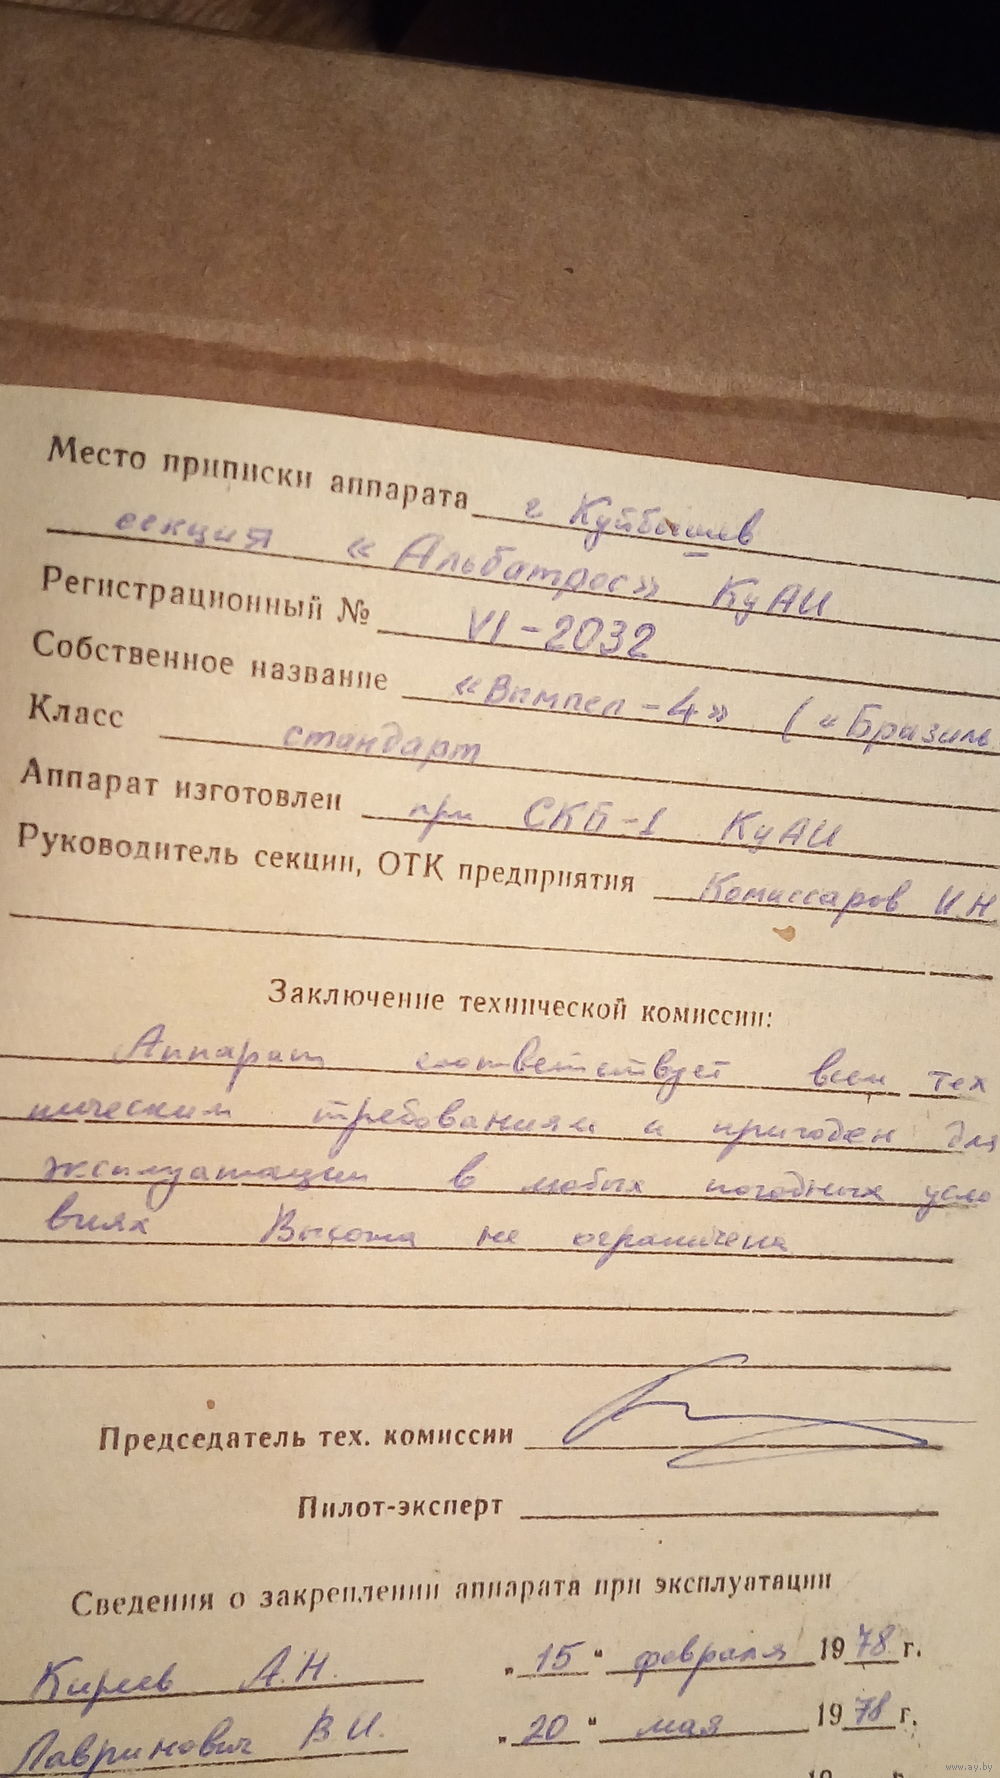 Место приписки аппарата г Куйбышев
секция «Альбатрос» КуАИ
Регистрационный № VI-2032
Собственное название «Вымпел-4» («Бразиль
Класс стандарт
Аппарат изготовлен при СКБ-1 КуАИ
Руководитель секции, ОТК предприятия Комиссаров И.Н
Заключение технической комиссии:
Аппарат соответствует всем тех
ническим требованиям и пригоден для
эксплуатации в любых погодных усло
виях Высота не ограничена
Председатель тех. комиссии
Пилот-эксперт
Сведения о закреплении аппарата при эксплуатации
Киреев А.Н. „15" февраля 1978 г.
Лавринович В.И. „20" мая 1978 г.
www.ay.by